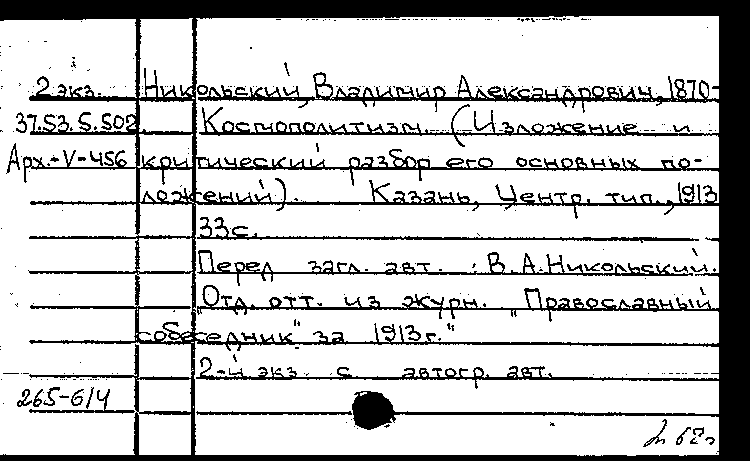 2 экз. Никольский, Владимир Александрович, 1870-
37.53.5.502. Космополитизм. (Изложение и
Арх.-V-456 критический разбор его основных по-
ложений). Казань, Центр. тип., 1913
33с.
Перед загл. авт. : В.А.Никольский.
"Отд. отт. из журн. "Православный
собеседник" за 1913г."
2-й экз. с автогр. авт.
265-61/4